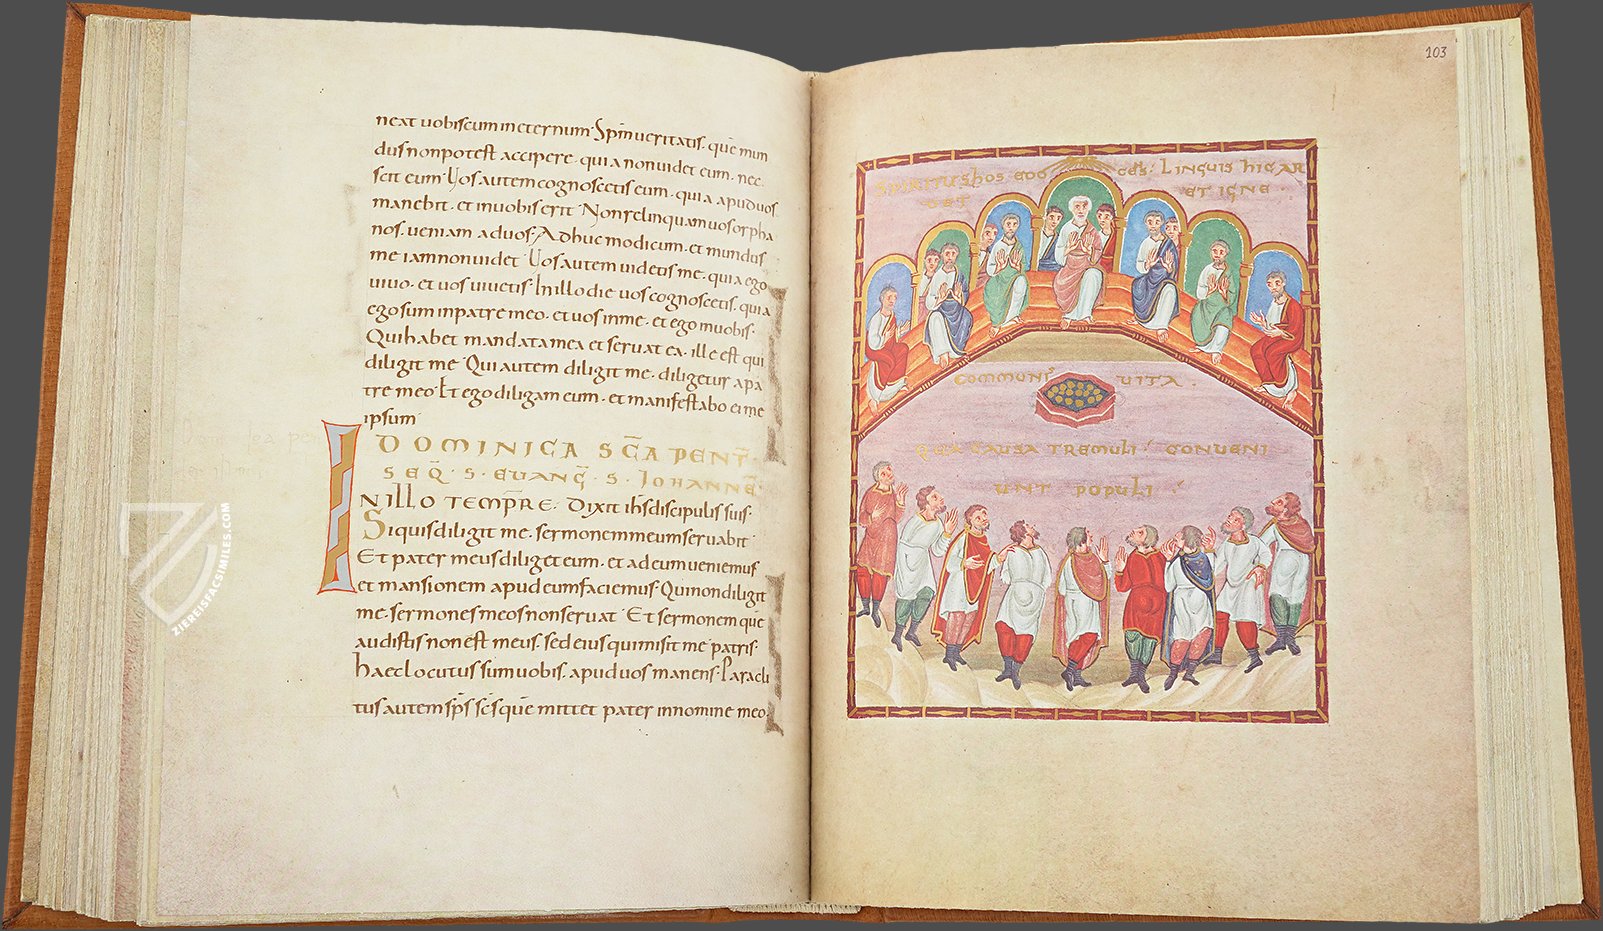 neat uobiscum ineternum· Sp̄m ueritatis· quē mun
dus non potest accipere· quia non uidet eum· nec
scit eum· Uos autem cognoscetis eum· quia apud uos
manebit· et in uobis erit· Non relinquam uos orpha
nos· ueniam ad uos· Adhuc modicum· et mundus
me iam non uidet· Uos autem uidetis me· quia ego
uiuo· et uos uiuetis· In illo die uos cognoscetis· quia
ego sum in patre meo· et uos in me· et ego in uobis·
Qui habet mandata mea et seruat ea· ille est qui
diligit me· Qui autem diligit me· diligetur a pa
tre meo· Et ego diligam eum· et manifestabo ei me
ipsum·
DOMINICA SC̄A PENT̄·
SEQ̄· S· EUANḠ· S· IOHANNĒ·
IN ILLO TEMPR̄E· Dixit ih̄s discipulis suis·
Si quis diligit me· sermonem meum seruabit·
Et pater meus diliget eum· et ad eum ueniemus
et mansionem apud eum faciemus· Qui non diligit
me· sermones meos non seruat· Et sermonem quē
audistis non est meus· sed eius qui misit me patris·
Haec locutus sum uobis· apud uos manens· Paracli
tus autem sp̄s sc̄s quē mittet pater in nomine meo·
ZIEREISFACSIMILES.COM
103
SPIRITUS hOS EDO CES· LINGUIS hIC AR
DET ET IGNE·
COMMUNIS UITA·
QUA CAUSA TREMULI· CONUENI
UNT POPULI·